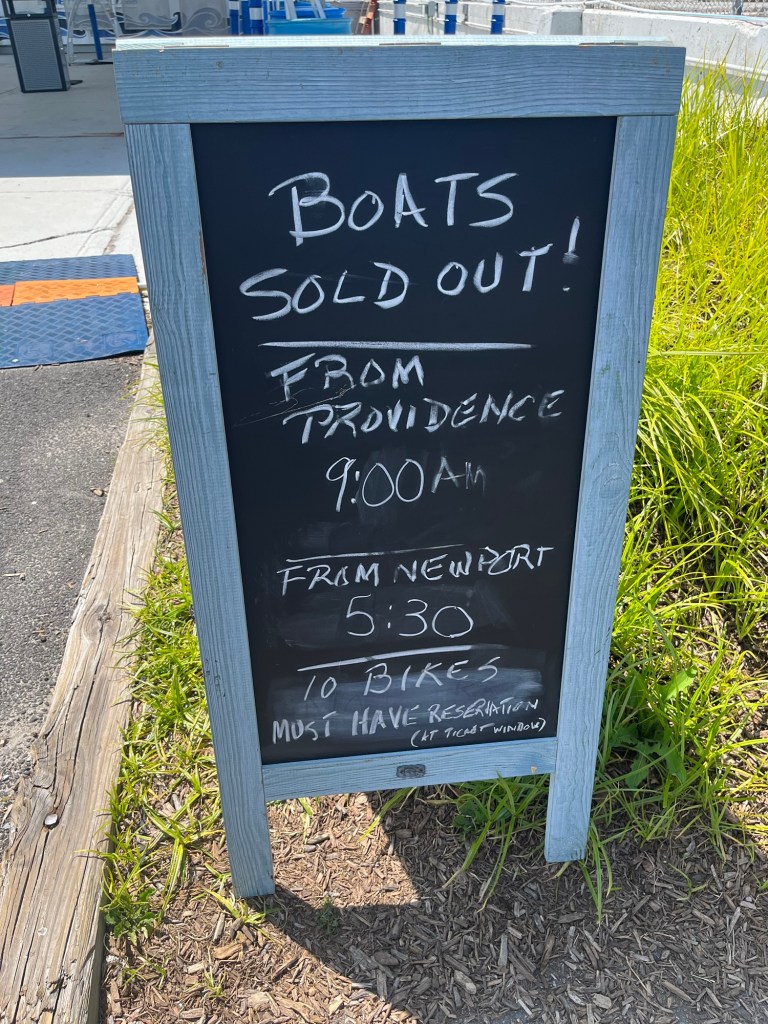 BOATS
SOLD OUT!
FROM
PROVIDENCE
9:00AM
FROM NEWPORT
5:30
10 BIKES
MUST HAVE RESERVATION
(AT TICKET WINDOW)